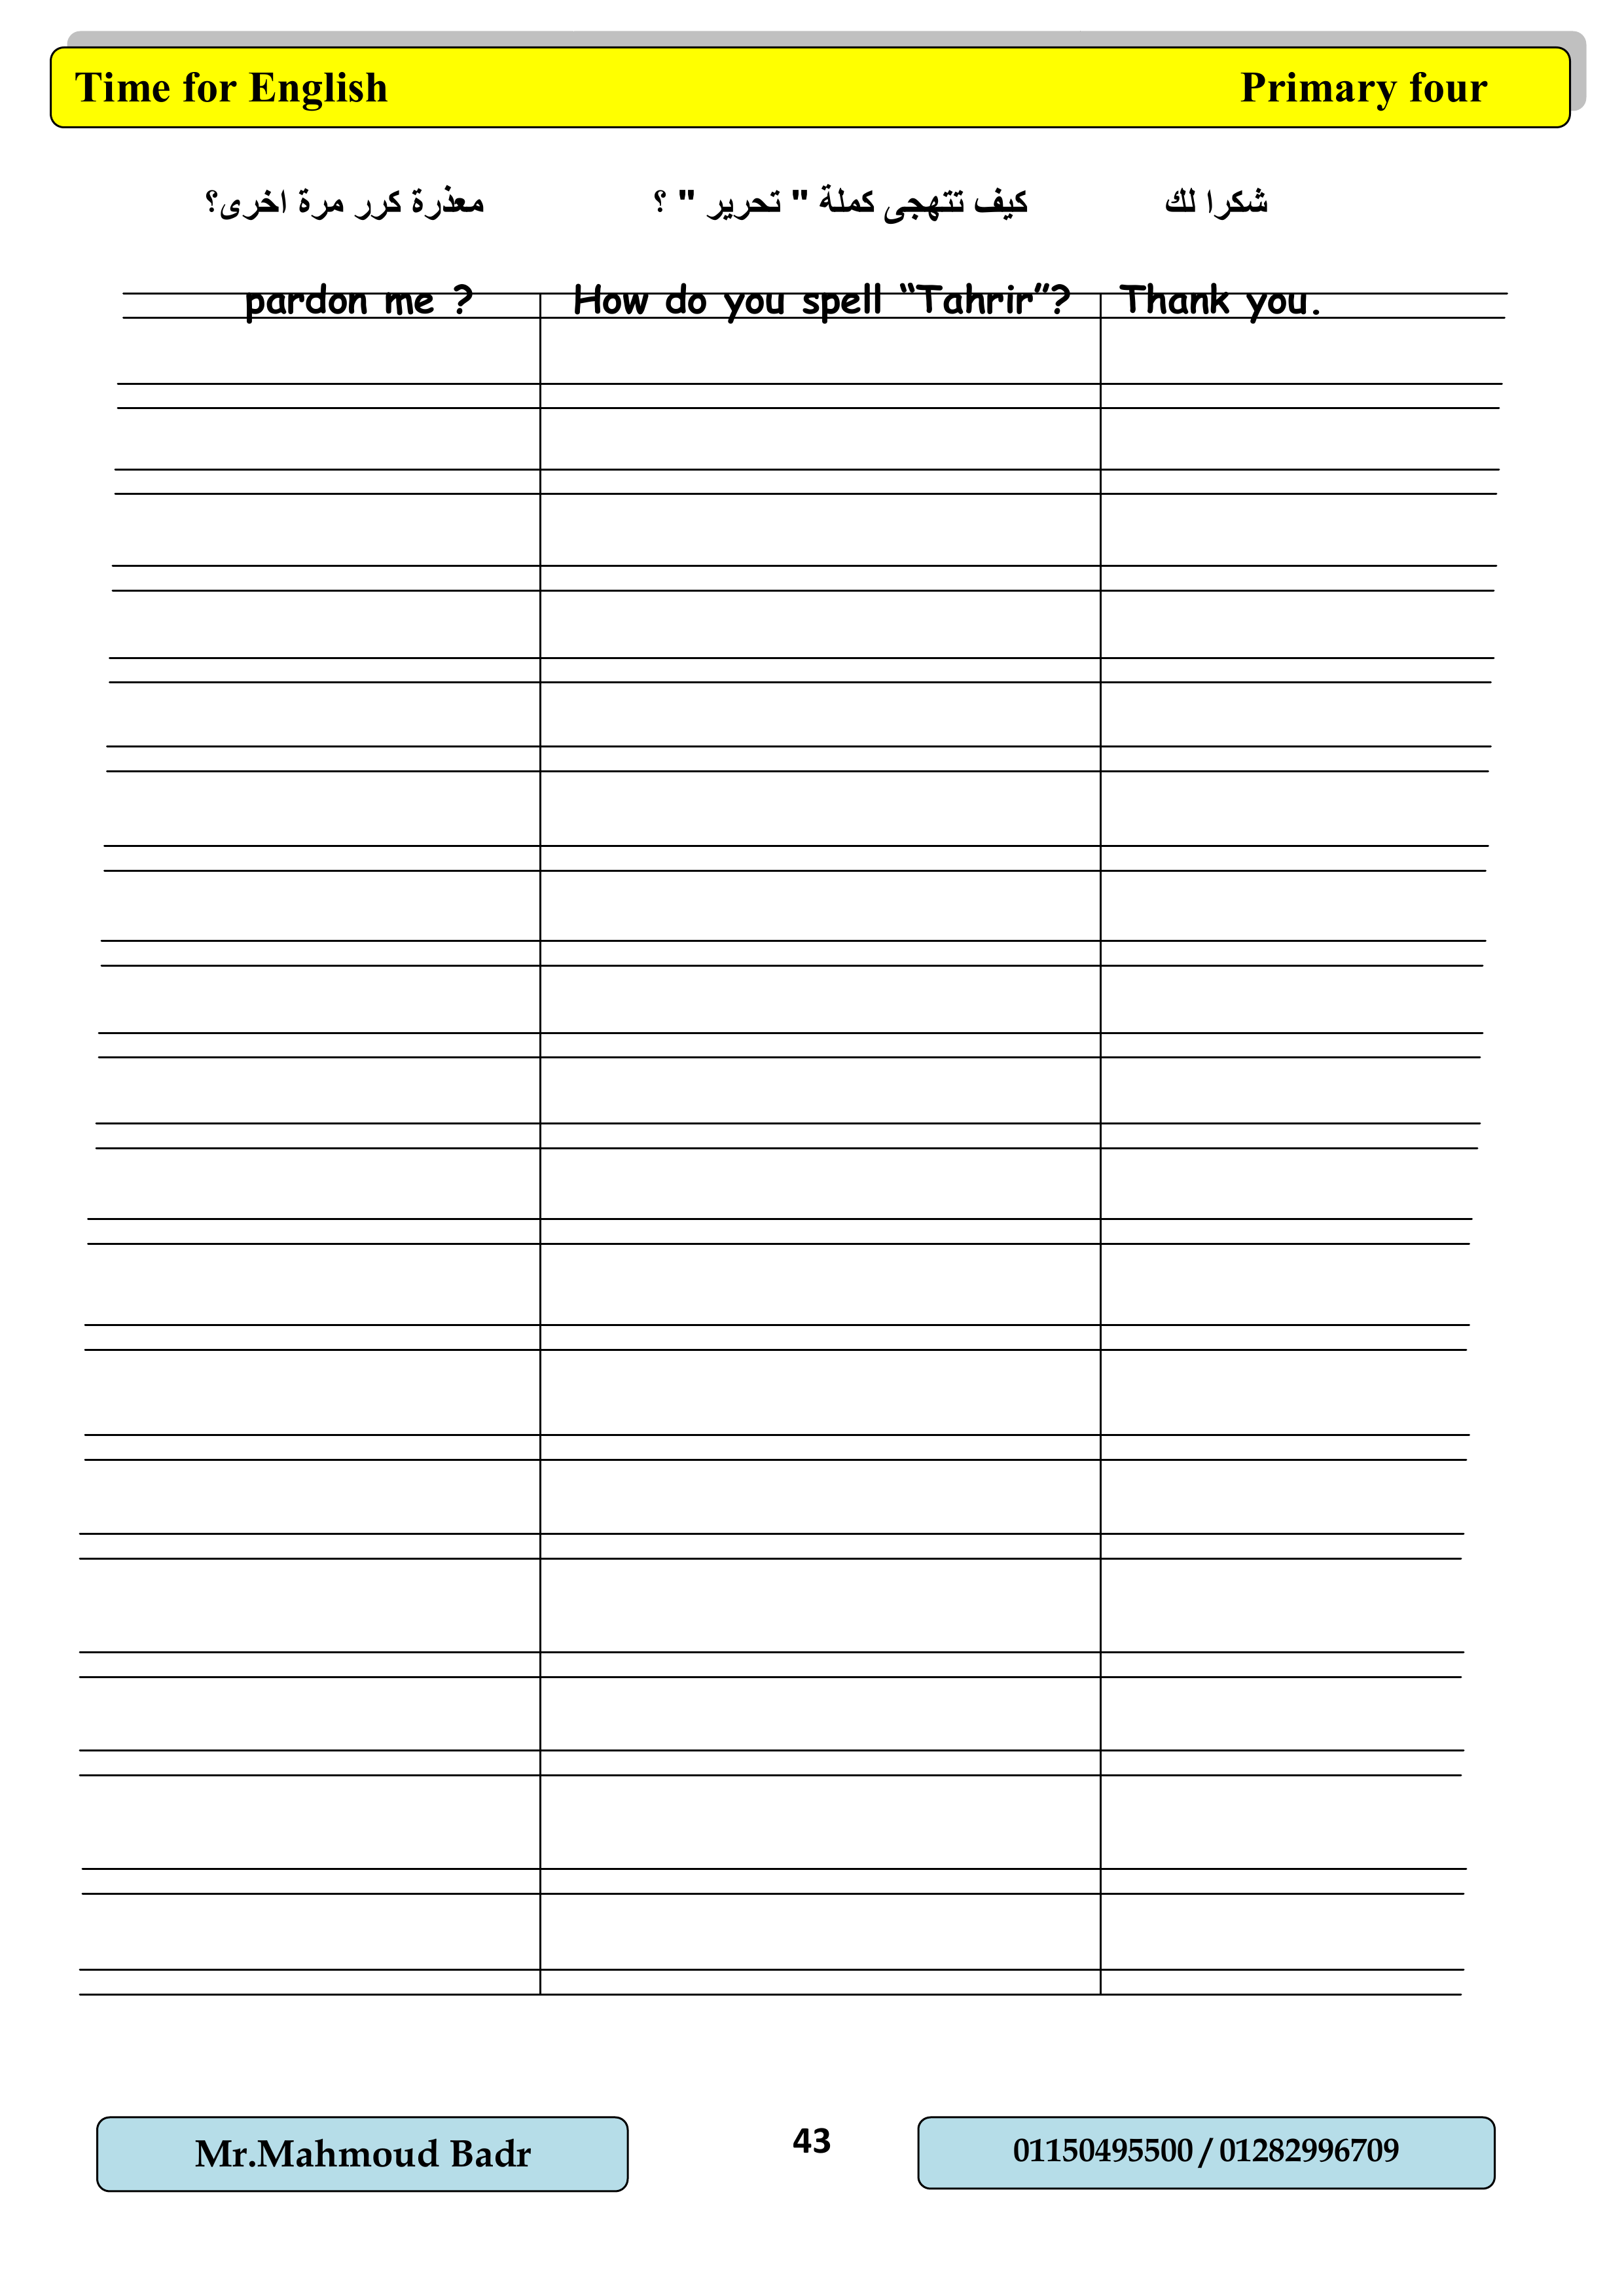 Time for English Primary four
معذرة كرر مرة اخرى؟ كيف تتهجى كملة " تحرير " ؟ شكرا لك
pardon me ? How do you spell “Tahrir”? Thank you.
Mr.Mahmoud Badr 43 01150495500 / 01282996709